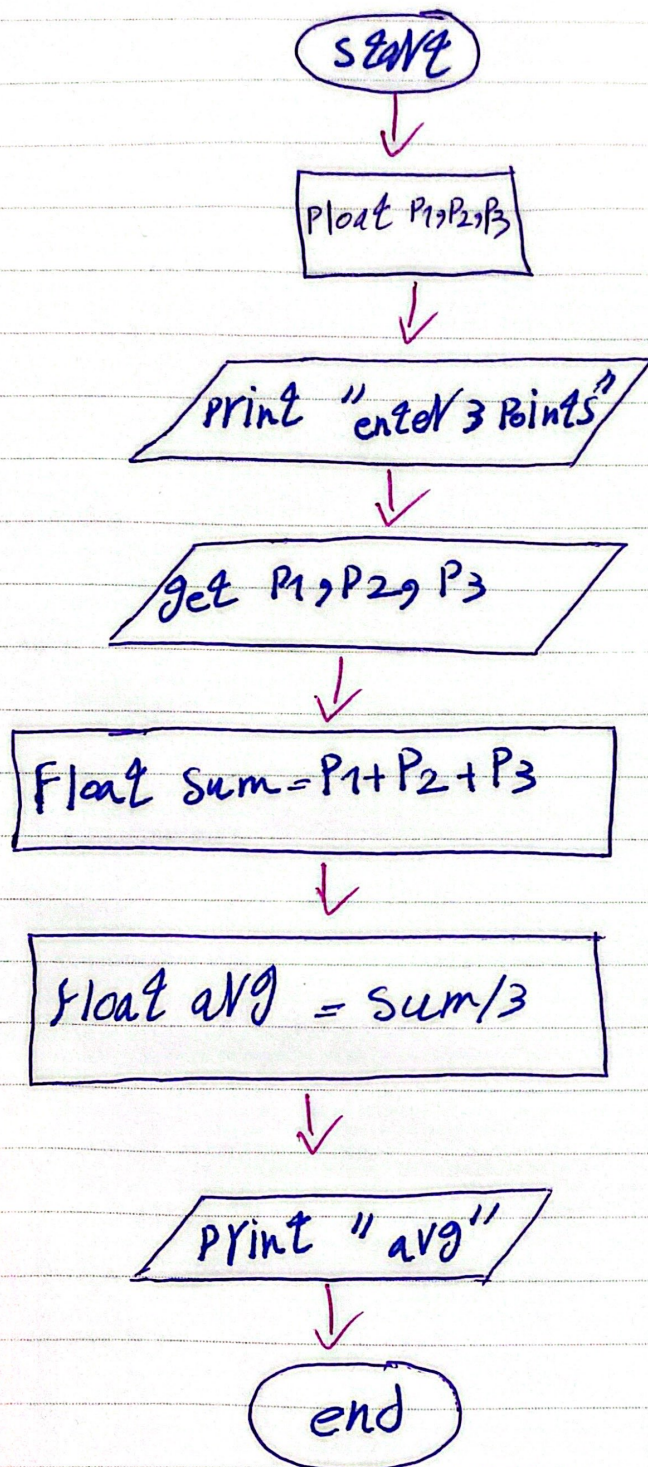 start
float P1,P2,P3
print "enter 3 Points"
get P1,P2,P3
Float sum=P1+P2+P3
float avg = sum/3
print "avg"
end